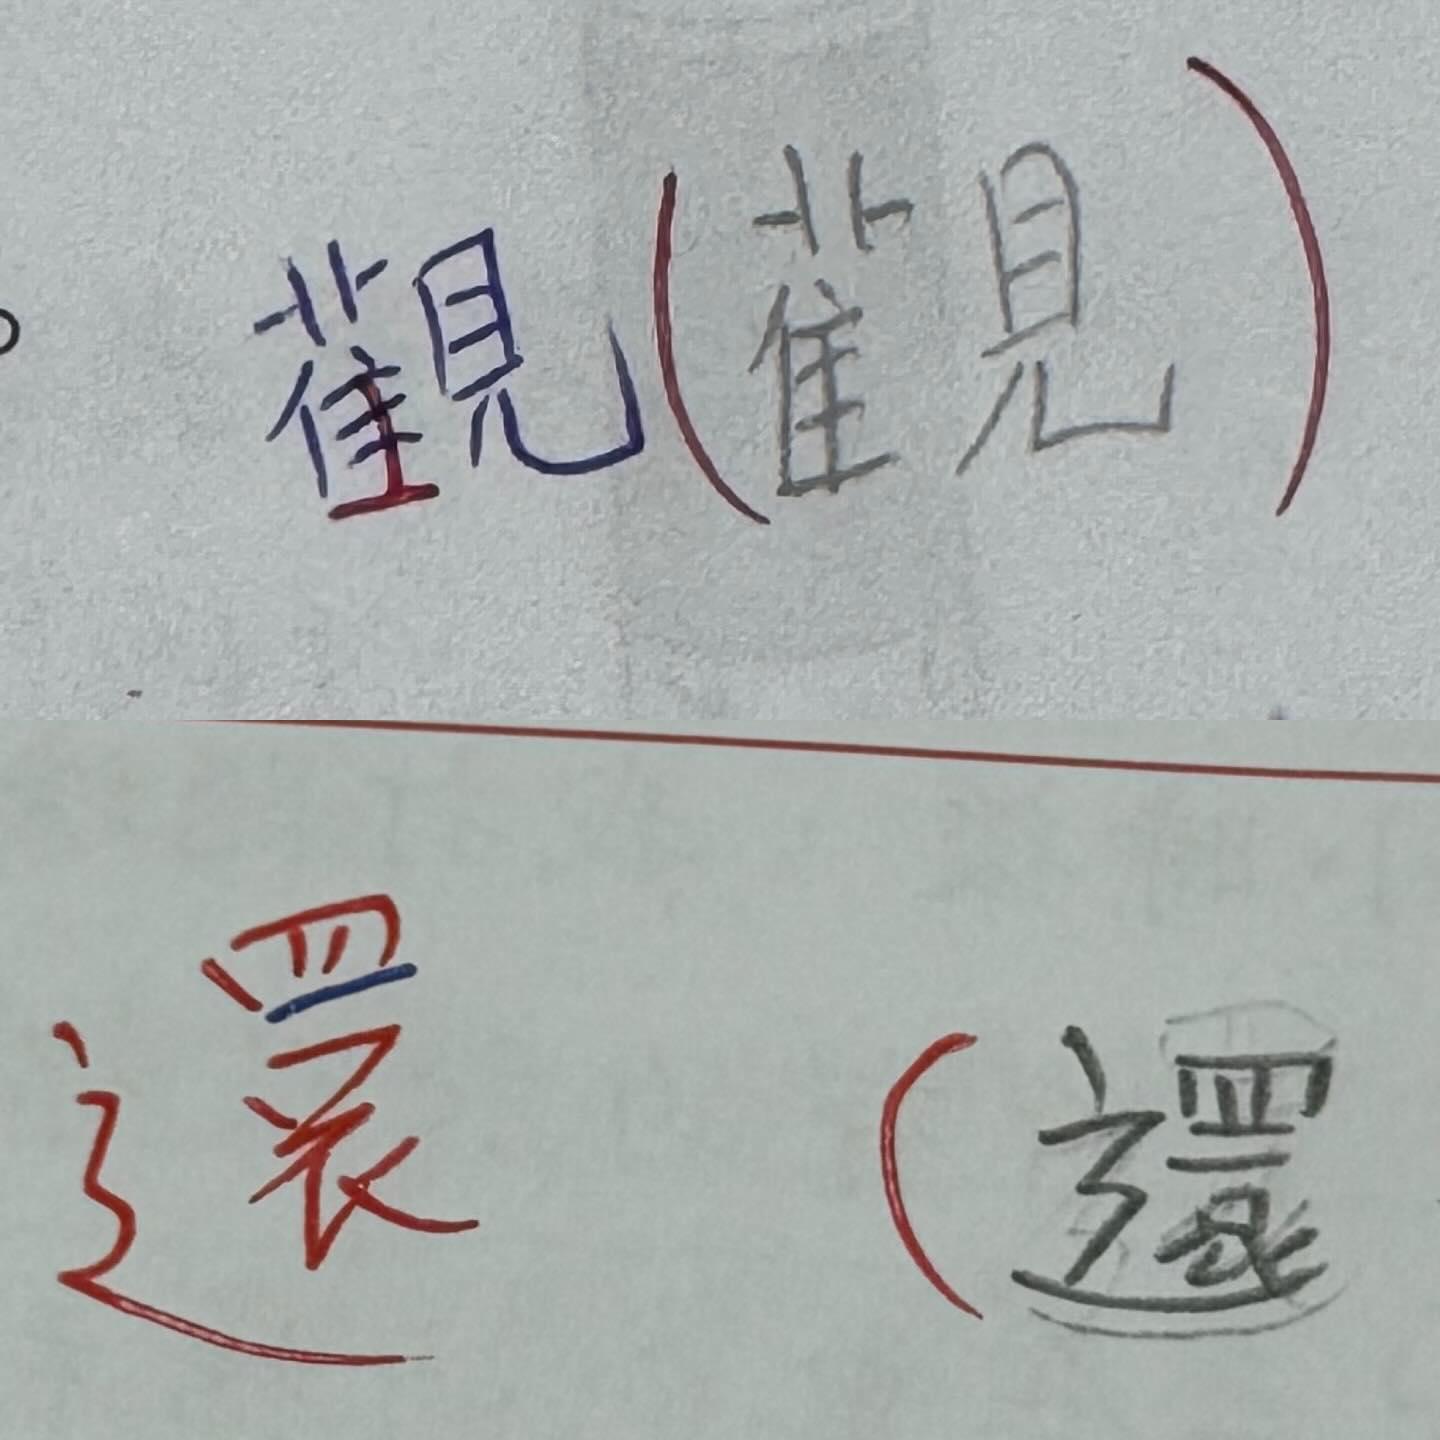 。觀(觀)
還(還